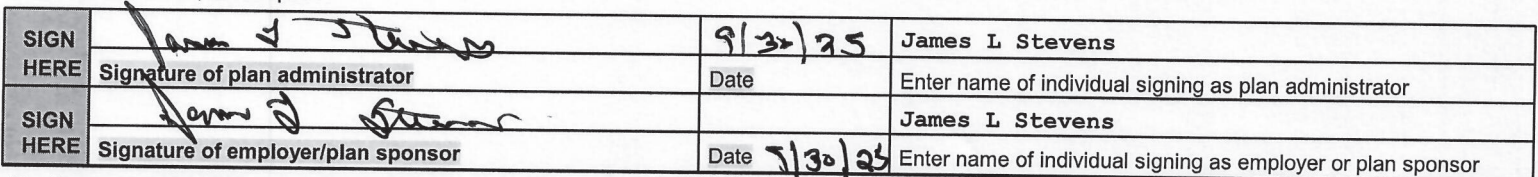 SIGN HERE James L Stevens 9/30/25 James L Stevens
Signature of plan administrator Date Enter name of individual signing as plan administrator
SIGN HERE James L Stevens James L Stevens
Signature of employer/plan sponsor Date 9/30/25 Enter name of individual signing as employer or plan sponsor